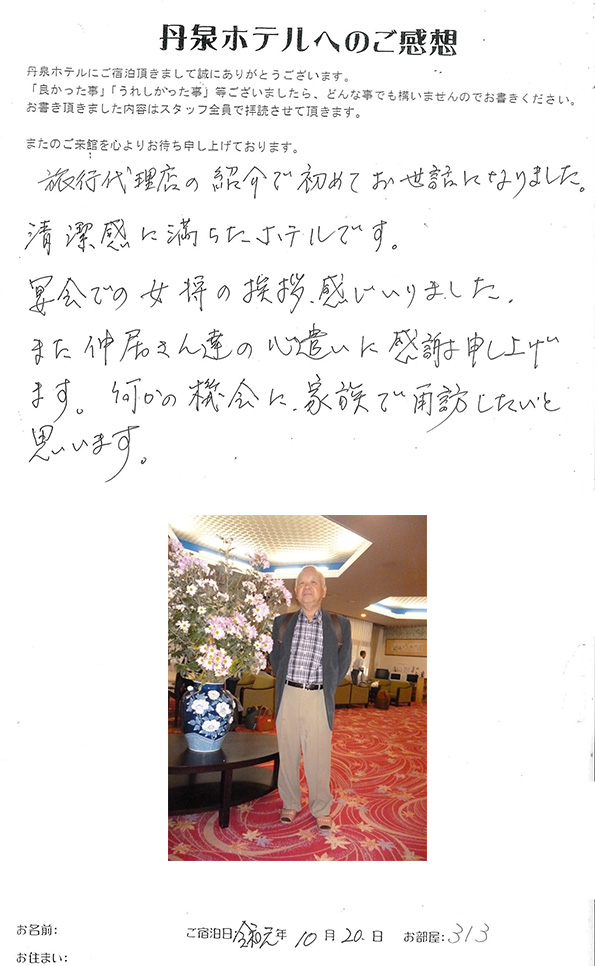 丹泉ホテルへのご感想
丹泉ホテルにご宿泊頂きまして誠にありがとうございます。
「良かった事」「うれしかった事」等ございましたら、どんな事でも構いませんのでお書きください。
お書き頂きました内容はスタッフ全員で拝読させて頂きます。
またのご来館を心よりお待ち申し上げております。
旅行代理店の紹介で初めてお世話になりました。
清潔感に満ちたホテルです。
宴会での女将の挨拶、感じいりました。
また仲居さん達の心遣いに感謝申し上げ
ます。何かの機会に、家族で再訪したいと
思います。
お名前: ご宿泊日 令和元年 10月 20日 お部屋: 313
お住まい: